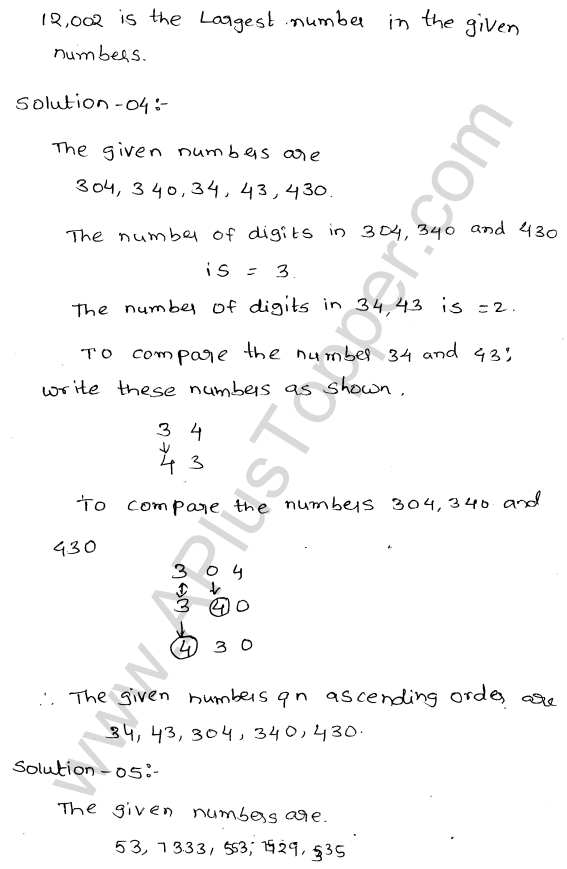 12,002 is the Largest number in the given
numbers.
Solution-04:-
The given numbers are
304, 340, 34, 43, 430.
The number of digits in 304, 340 and 430
is = 3.
The number of digits in 34, 43 is = 2.
To compare the number 34 and 43;
write these numbers as shown.
3 4
↓
4 3
To compare the numbers 304, 340 and
430
3 0 4
↕ ↓
3 4 0
↓
4 3 0
∴ The given numbers in ascending order are
34, 43, 304, 340, 430.
Solution-05:-
The given numbers are.
53, 7333, 553,
www.APlusTopper.com